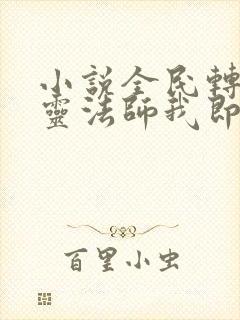 小說全民轉
靈法師我即
百里小虫